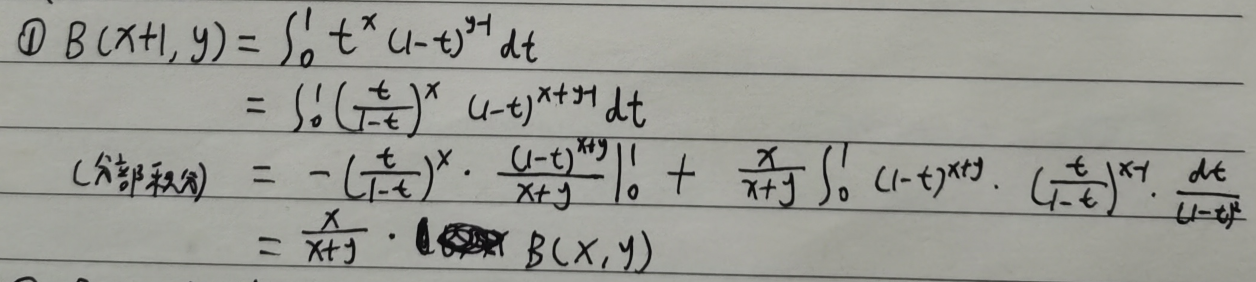 ① B(x+1, y) = ∫₀¹ t^x (1-t)^{y-1} dt
= ∫₀¹ (t/(1-t))^x (1-t)^{x+y-1} dt
(分部积分) = -(t/(1-t))^x · (1-t)^{x+y}/(x+y) |₀¹ + x/(x+y) ∫₀¹ (1-t)^{x+y} · (t/(1-t))^{x-1} · dt/(1-t)²
= x/(x+y) · B(x, y)